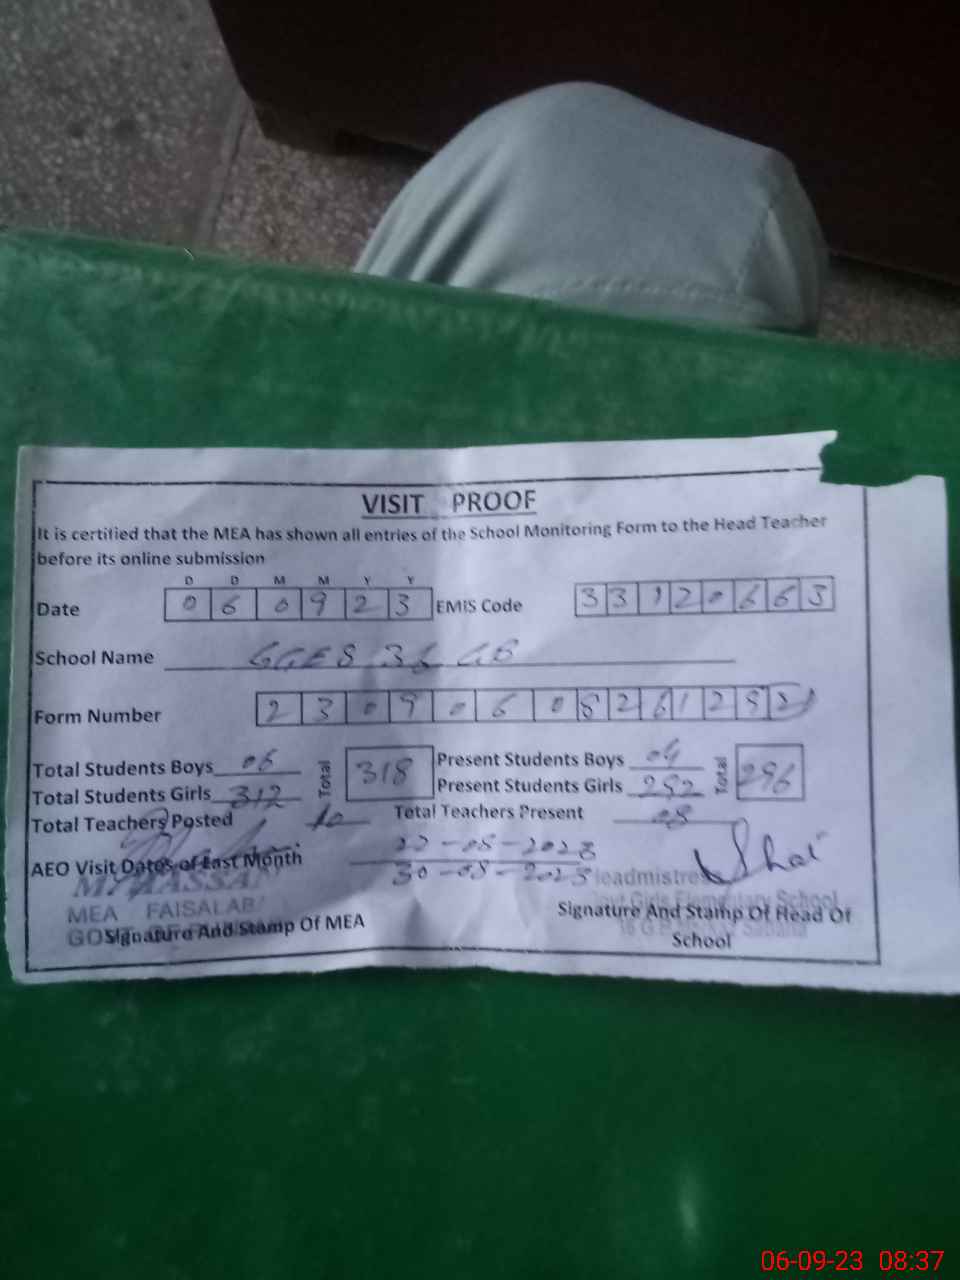 VISIT PROOF
It is certified that the MEA has shown all entries of the School Monitoring Form to the Head Teacher
before its online submission
D D M M Y Y
Date 0 6 0 9 2 3 EMIS Code 3 3 1 2 0 6 6 3
School Name GGES 36 GB
Form Number 2 3 0 9 0 6 0 8 2 6 1 2 5 2
Total Students Boys 06 Total 318 Present Students Boys 04 Total 296
Total Students Girls 312 Present Students Girls 292
Total Teachers Posted 10 Total Teachers Present 08
AEO Visit Dates of Last Month 22-08-2023
30-08-2023
Headmistress
MEA FAISALABAD
Govt Girls Elementary School
Signature And Stamp Of MEA
Signature And Stamp Of Head Of
School
06-09-23 08:37